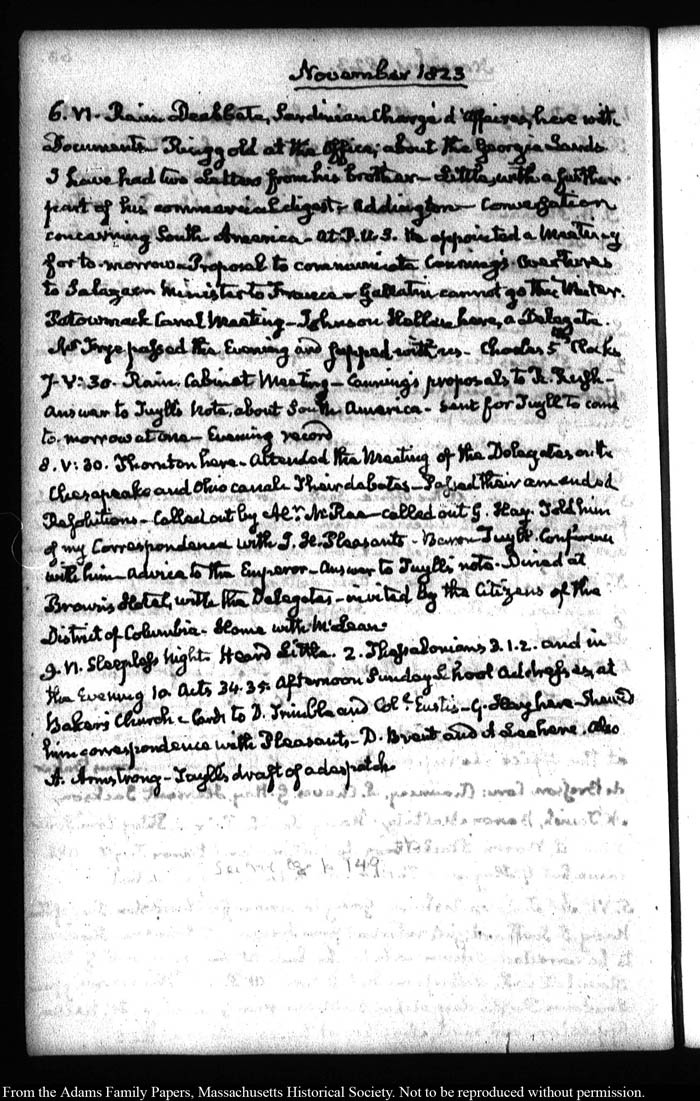 November 1823
6. VI. Rain. Deabbate, Sardinian Chargé d'affaires, here with
Documents. Ringgold at the Office, about the Georgia Lands
I have had two Letters from his brother. Little, with a further
part of his commercial digest. Addington Conversation
concerning South America. At P.U.S. He appointed a Meeting
for to-morrow. Proposal to communicate Canning's Overtures
to Salazar Minister to France. Gallatin cannot go this Winter.
Potowmack Canal Meeting. Johnson Hellen here, a Delegate.
Mr Frye passed the Evening and supped with us. Charles 5th
7. V:30. Rain. Cabinet Meeting. Canning's proposals to R. Rush.
Answer to Tuyll's Note, about South America. Sent for Tuyll to come
to-morrow at one. Evening record
8. V:30. Thornton here. Attended the Meeting of the Delegates on the
Chesapeake and Ohio canal. Their debates. Passed their amended
Resolutions. Called out by Alr. McRae. called out G. Hay. Told him
of my Correspondence with J. H. Pleasants. Baron Tuyll. Conference
with him. Advice to the Emperor. Answer to Tuyll's note. Dined at
Brown's Hotel, with the Delegates. invited by the Citizens of the
District of Columbia. Home with McLean.
9. VI. Sleepless Night. Heard Little. 2. Thessalonians 3. 1.2. and in
the Evening 10 Acts 34.35. Afternoon Sunday School Addresses, at
Baker's Church. Cards to D. Trimble and Coll. Eustis. G. Hay here. Shewed
him correspondence with Pleasants. D. Brent and A Lee here. Also
A. Armstrong. Tuyll's draft of a despatch
149
From the Adams Family Papers, Massachusetts Historical Society. Not to be reproduced without permission.